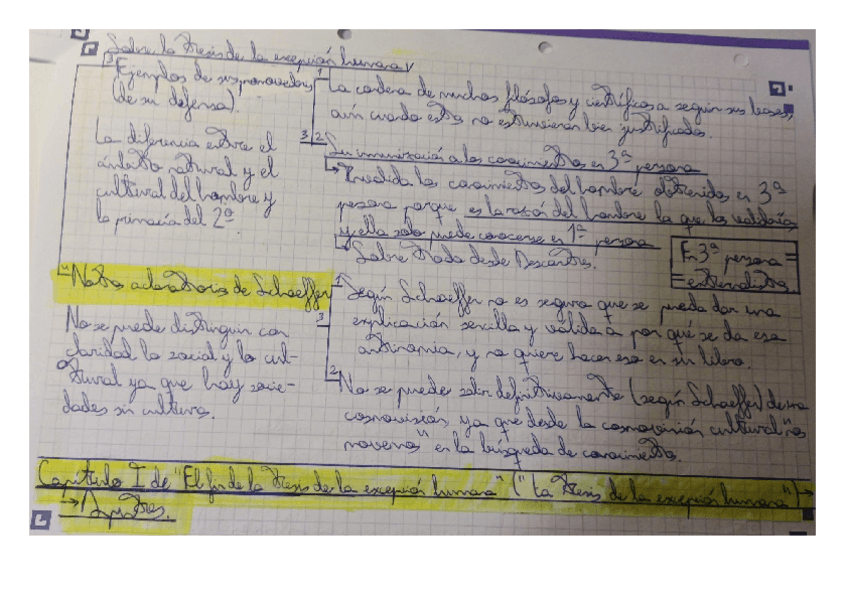 Sobre la tesis de la excepción humana
Ejemplos de sus promovedores
(de su defensa).
La diferencia entre el
ámbito natural y el
cultural del hombre y
la primacía del 2ª
1 La condena de muchos filósofos y científicos a según sus bases,
aún cuando estas no estuviesen bien justificadas.
3 2 Su inmunización a los conocimientos en 3ª persona
Invalida los conocimientos del hombre obtenidos en 3ª
persona porque es la razón del hombre la que los validaría
y ella solo puede conocerse en 1ª persona
Sobre todo desde Descartes.
En 3ª persona =
= externalista.
"Notas aclaratorias de Schaeffer
No se puede distinguir con
claridad lo social y lo cul-
tural ya que hay socie-
dades sin cultura.
1 Según Schaeffer no es seguro que se pueda dar una
explicación sencilla y válida a por qué se da esa
antinomia, y no quiere hacer eso en su libro.
3
2 No se puede salir definitivamente (según Schaeffer) de una
cosmovisión, ya que desde la cosmovisión cultural "nos
movemos" en la búsqueda de conocimientos.
Capítulo I de "El fin de la tesis de la excepción humana" ("La tesis de la excepción humana") →
→ Apuntes.